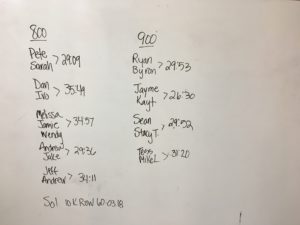 800
Pete
Sarah > 29:09
Dan
Ivo > 35:49
Melissa
Jamie > 34:57
Wendy
Andrew
Jake > 29:36
Jeff
Andrew > 34:11
Sol 10K Row 60:03.18
900
Ryan
Byron > 29:53
Jayme
Kayt > 26:30
Sean
Stacy T. > 29:52
Tess
Mike L > 31:20